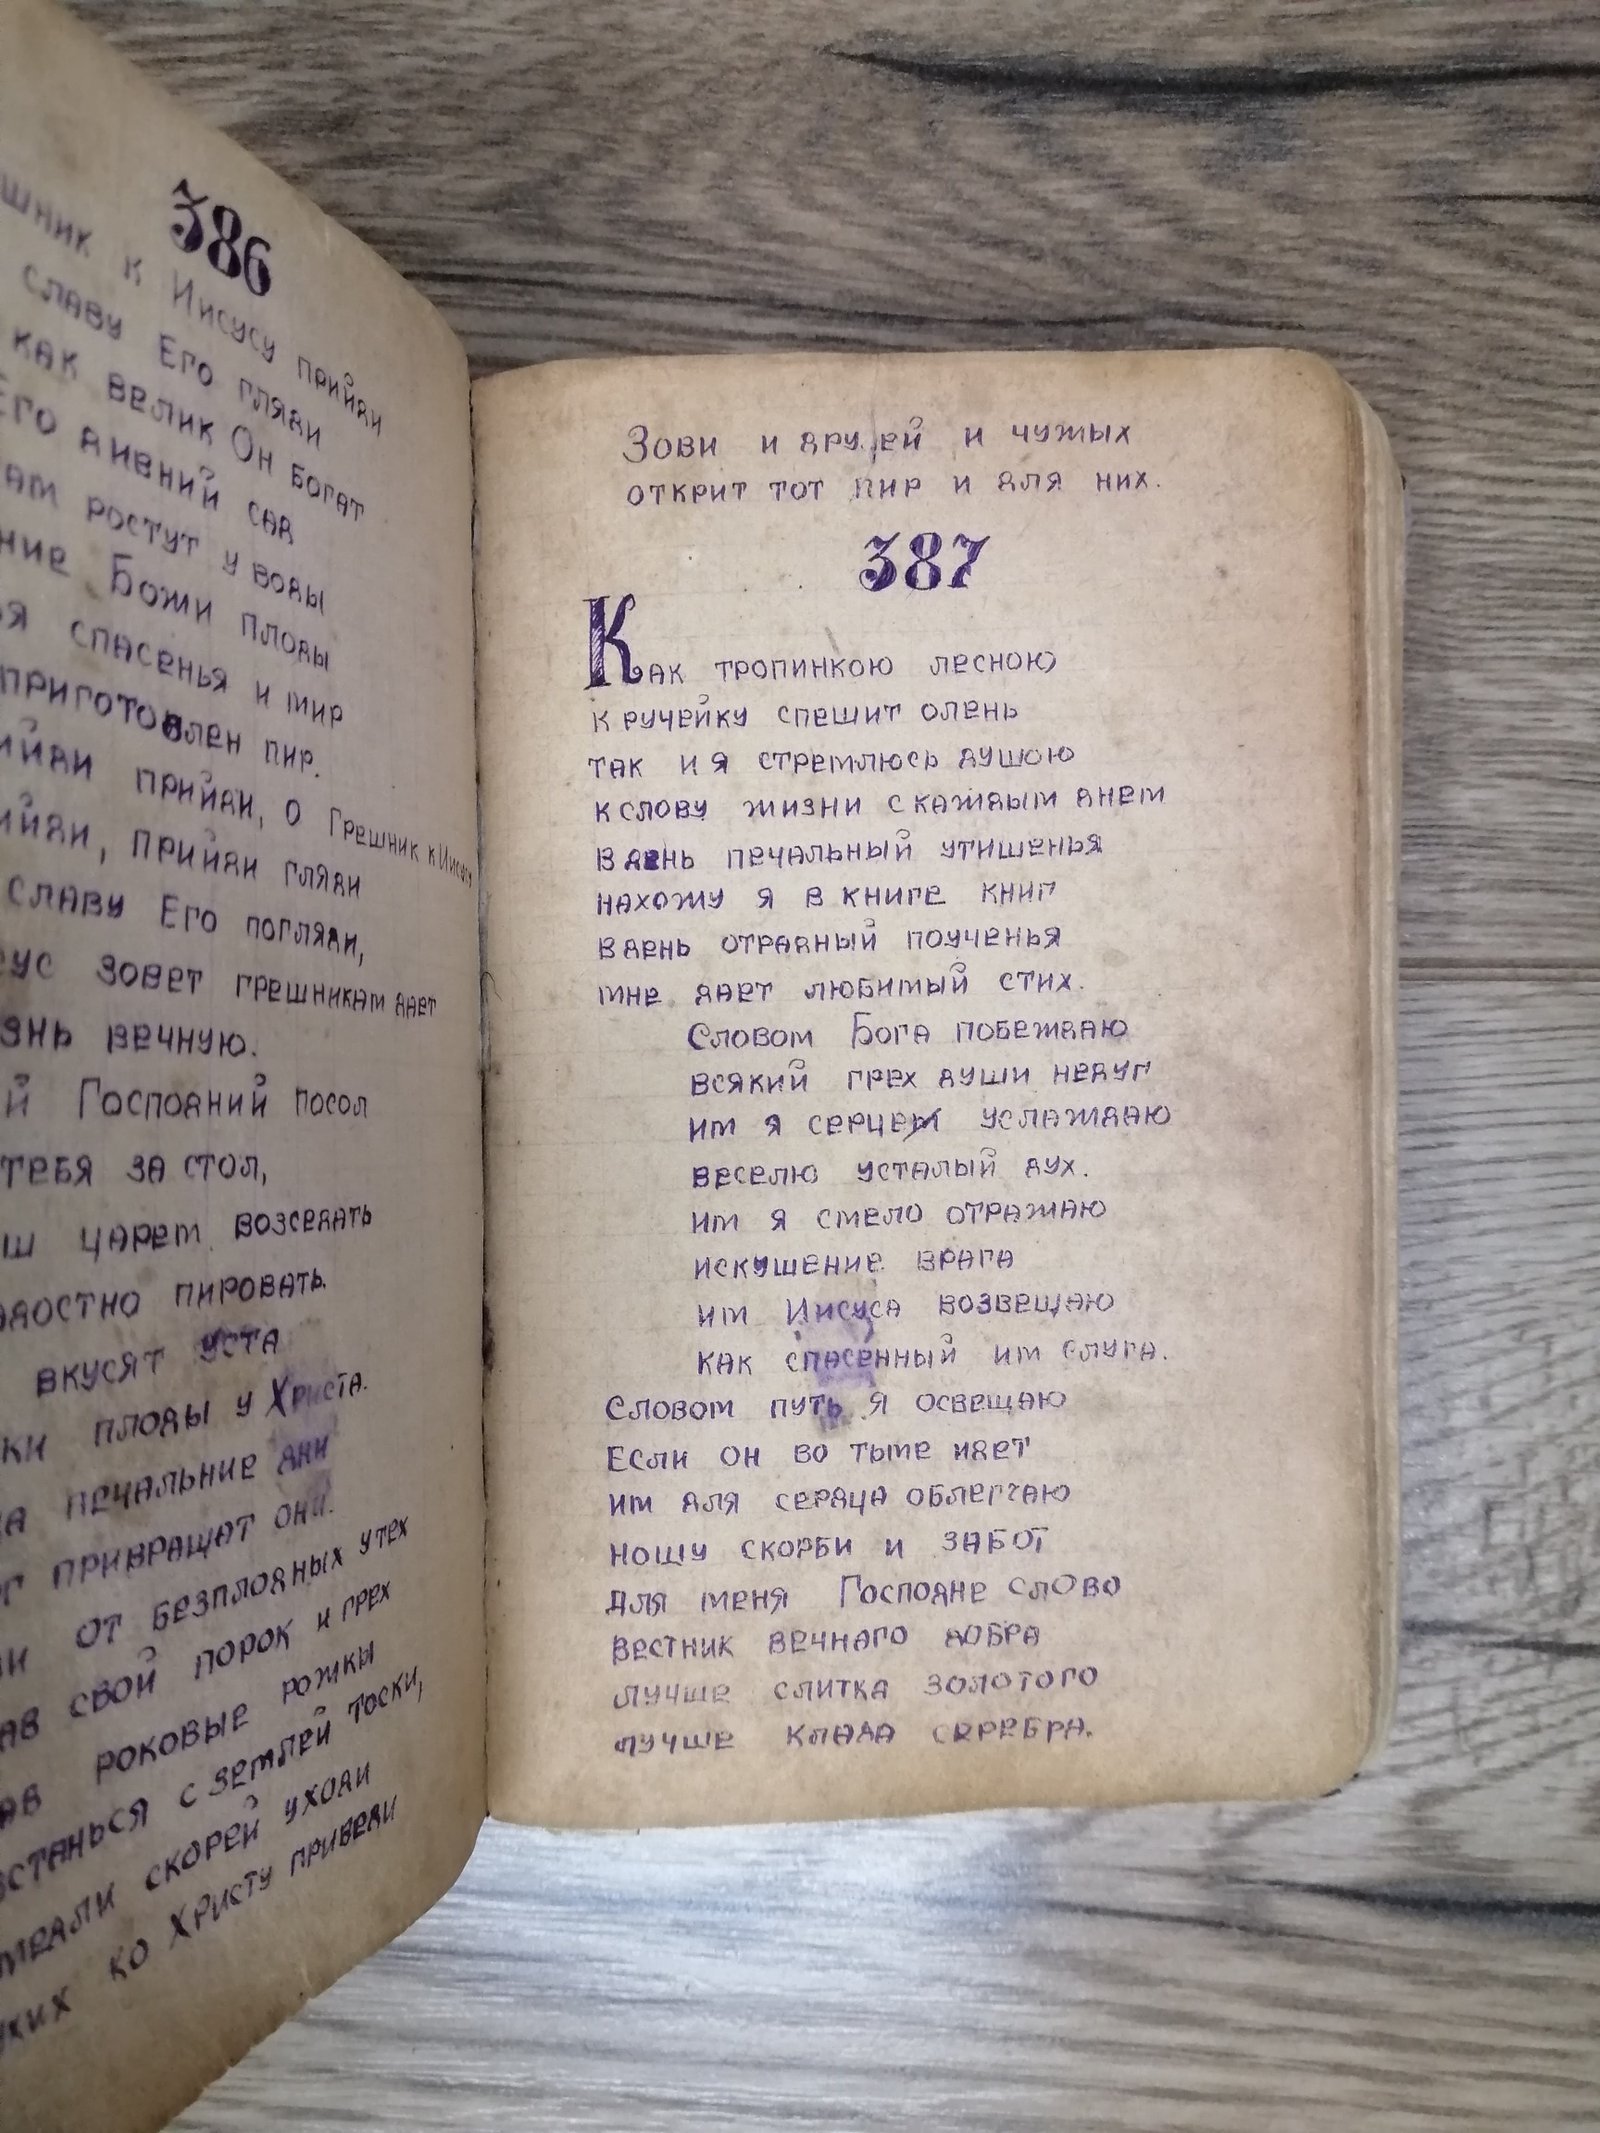 386
к Иисусу прийди
славу Его гляди
как велик Он богат
Его дивний сад
ростут у воды
Божи плоды
спасенья и мир
приготовлен пир.
прийди, о Грешник к Иисусу
прийди гляди
славу Его погляди,
зовет грешникам дает
вечную.
Господний посол
тебя за стол,
царем возседать
пировать.
вкусят уста
плоды у Христа.
печальние дни
привращат они.
от безплодных утех
свой порок и грех
роковые рожки
с землей тоски,
скорей уходи
ко Христу приведи
Зови и друзей и чужых
открит тот пир и для них.
387
Как тропинкою лесною
к ручейку спешит олень
так и я стремлюсь душою
к слову жизни с каждым днем
В день печальный утишенья
нахожу я в книге книг
в день отрадный поученья
мне дает любимый стих.
Словом Бога побеждаю
всякий грех души недуг
им я серцем услаждаю
веселю усталый дух.
им я смело отражаю
искушение врага
им Иисуса возвещаю
как спасенный им слуга.
Словом путь я освещаю
Если он во тьме идет
им для сердца облегчаю
ношу скорби и забот
для меня Господне слово
вестник вечнаго добра
лучше слитка золотого
лучше клада серебра.